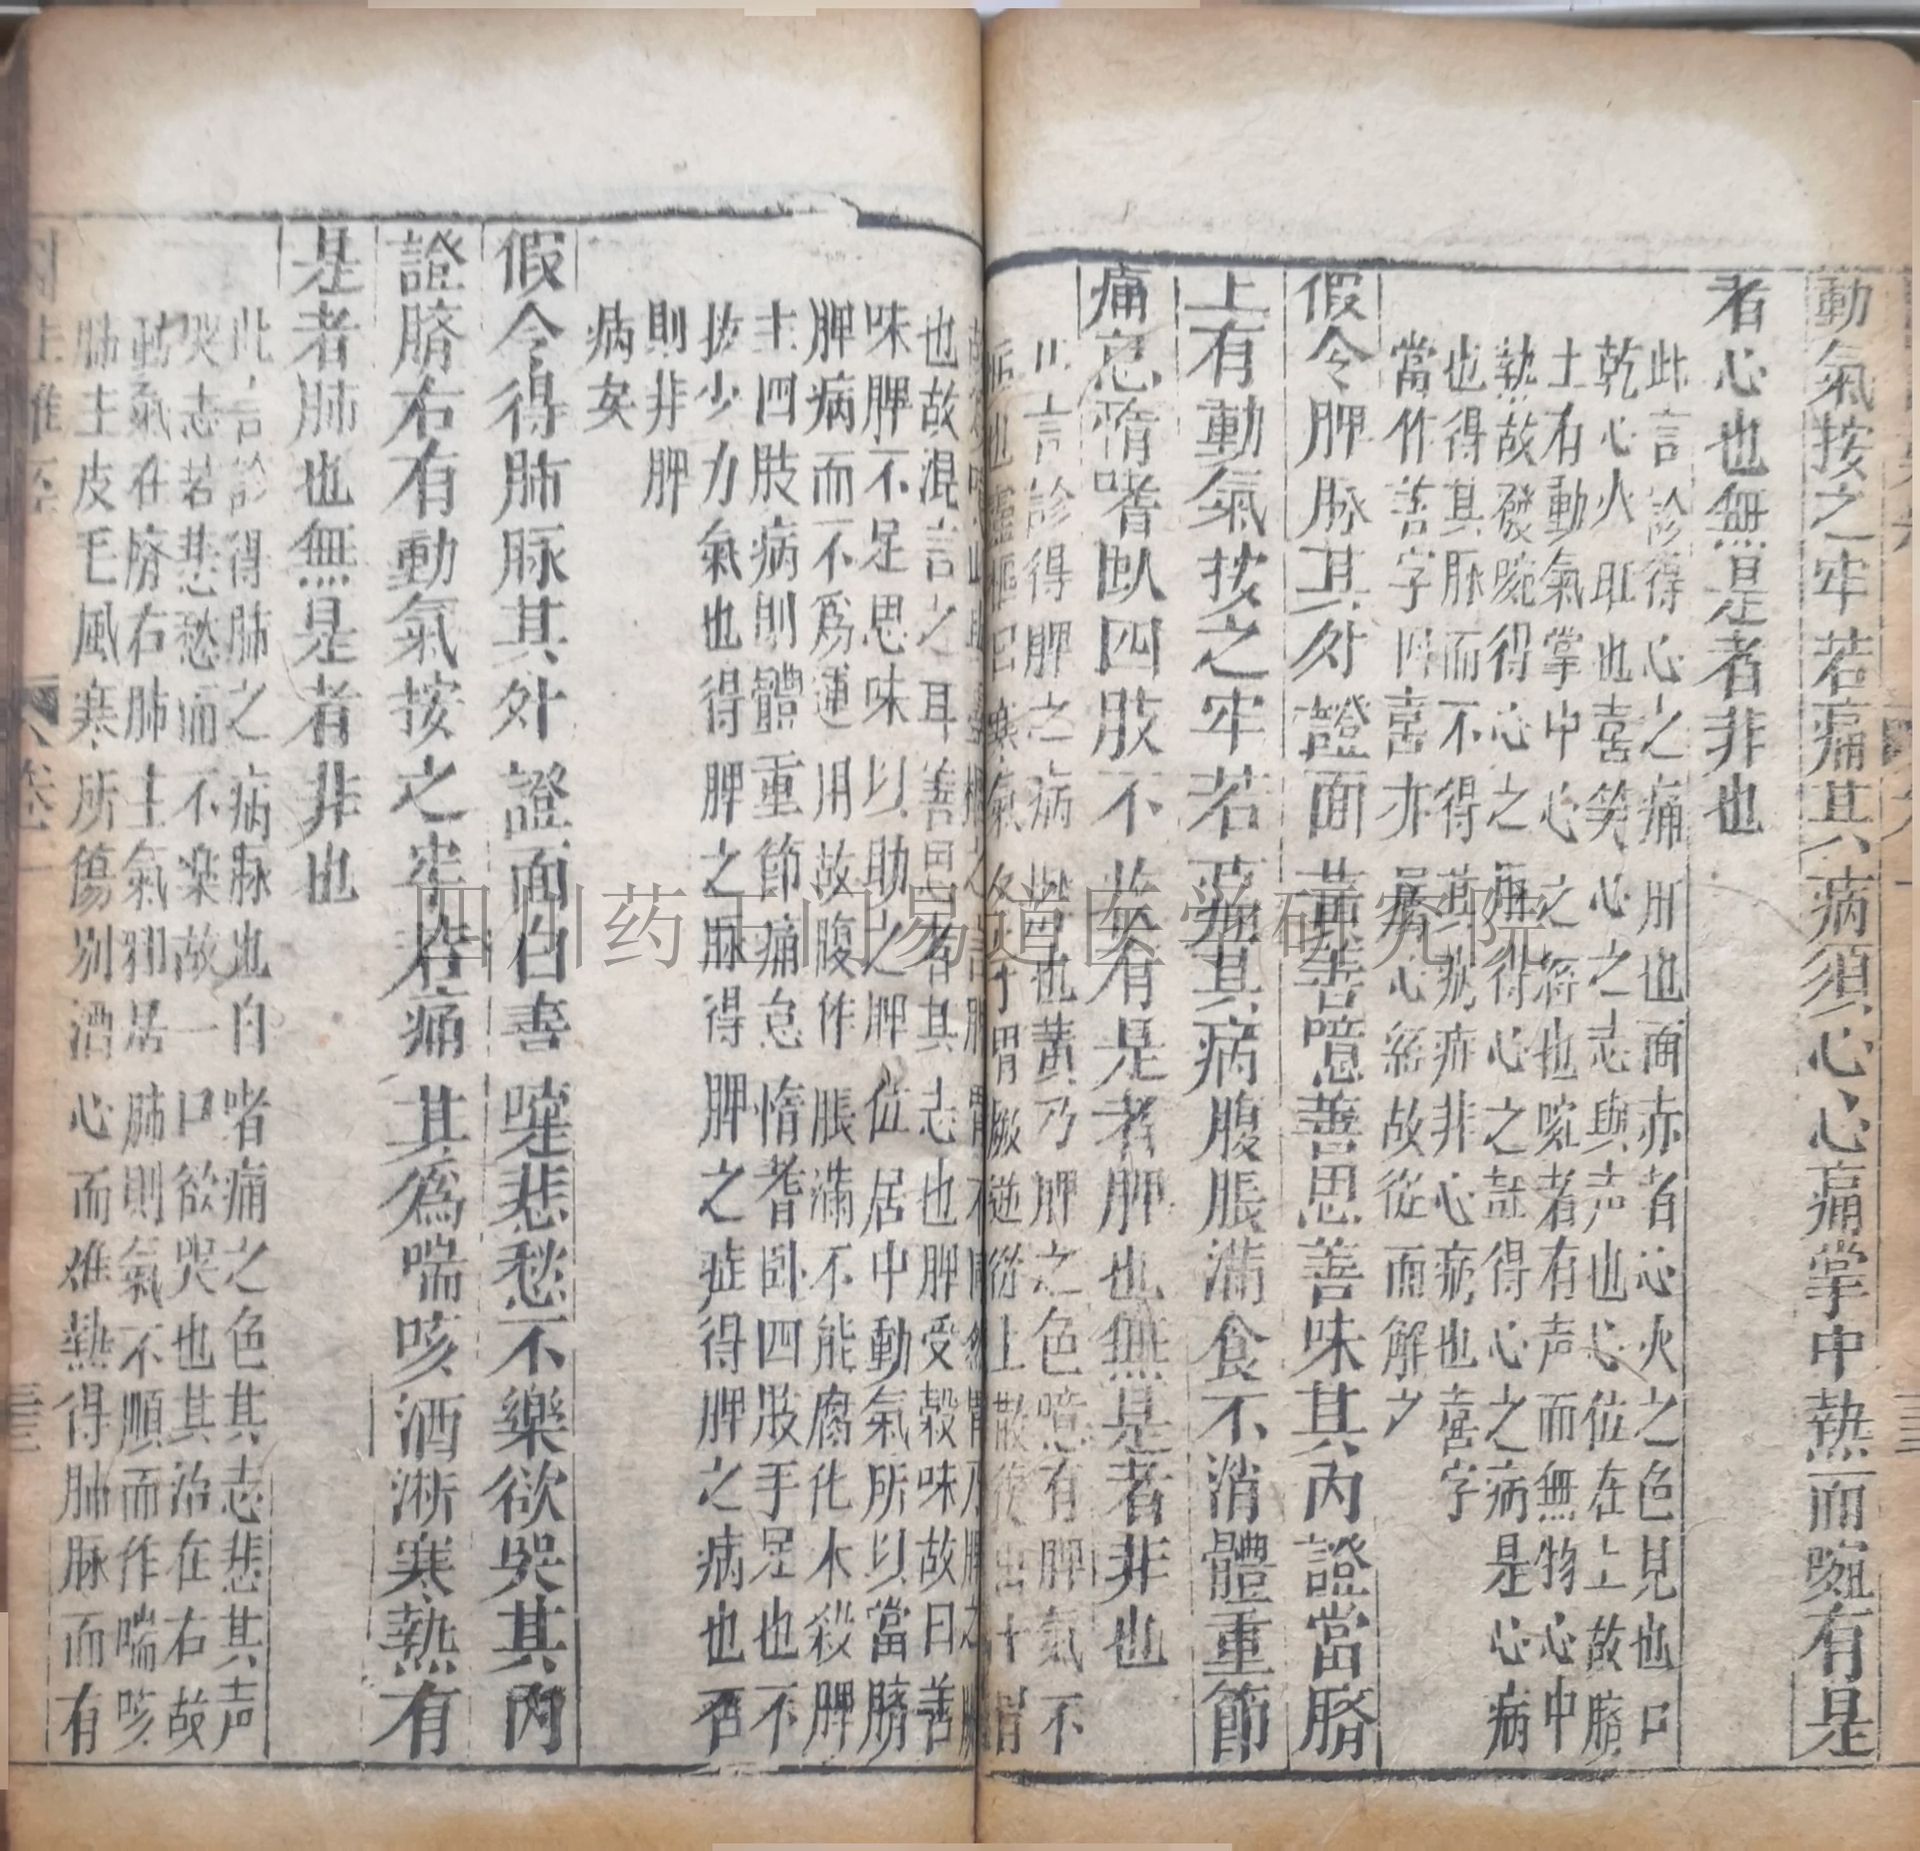 動氣按之牢若痛其病須心心痛掌中熱而啘有是
者心也無是者非也
此言診得心之病月也面赤者心火之色見也口
乾心火旺也喜笑心之志與声也心位在上故臍
上有動氣掌中心之經也啘者有声而無物心中
熱故發啘得心之
脉得心之誌得心之病是心病
也得其脉而不得其病病非心病也喜字
當作善字因喜亦屬心經故從而解之
假令脾脉其外證面黃善噫善思善味其內證當臍
上有動氣按之牢若痛其病腹脹滿食不消體重節
痛怠惰嗜臥四肢不收有是者脾也無是者脾非也
此言診得脾之病也黃乃脾之色噫有脾氣不
也靈樞曰寒氣客于胃厥逆從上散復出于胃
也故混言之耳善思者其志也脾受穀味故曰善
味脾不足思味以助之脾位居中動氣所以當臍
脾病而不爲運用故腹作脹滿不能腐化木殺脾
主四肢病則體重節痛怠惰嗜卧四肢手足也不
收少力氣也得脾之脉得脾之症得脾之病也否
則非脾
病矣
假令得肺脉其外證面白善嚏悲愁不樂欲哭其內
證臍右有動氣按之牢若痛其爲喘咳洒淅寒熱有
是者肺也無是者非也
此言診得肺之病脉也白者痛之色其志悲其声
哭志若悲愁而不楽故一口欲哭也其治在右故
動氣在臍右肺主氣獨居肺則氣不順而作喘咳
肺主皮毛風寒所傷別洒心而难熱得肺脉而有
四川药王门易道医学研究院